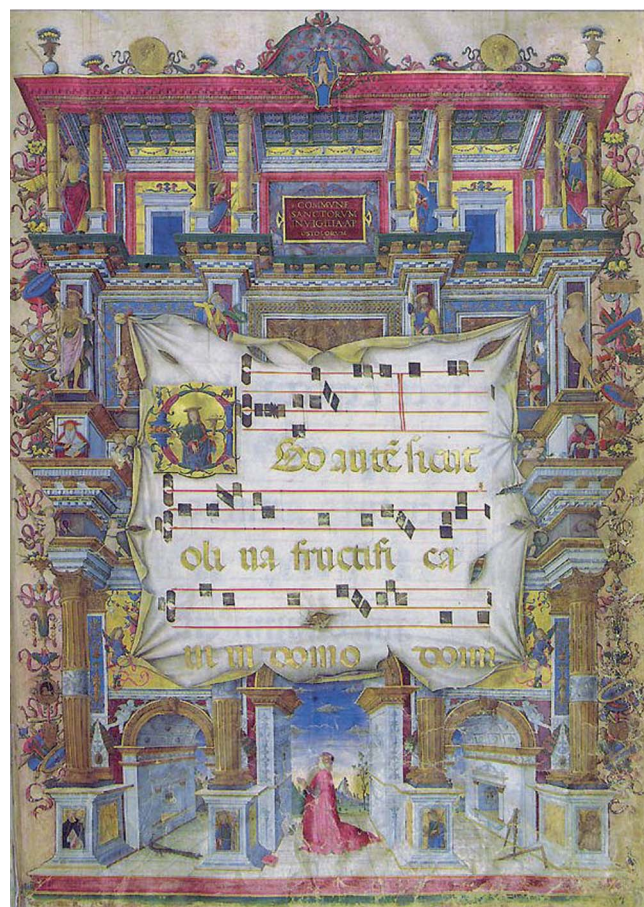 COMMVNE
SANCTORVM
IN VIGILIA AP
OSTOLORVM
Ego autē sicut
oli va fructifi ca
vi in domo domi